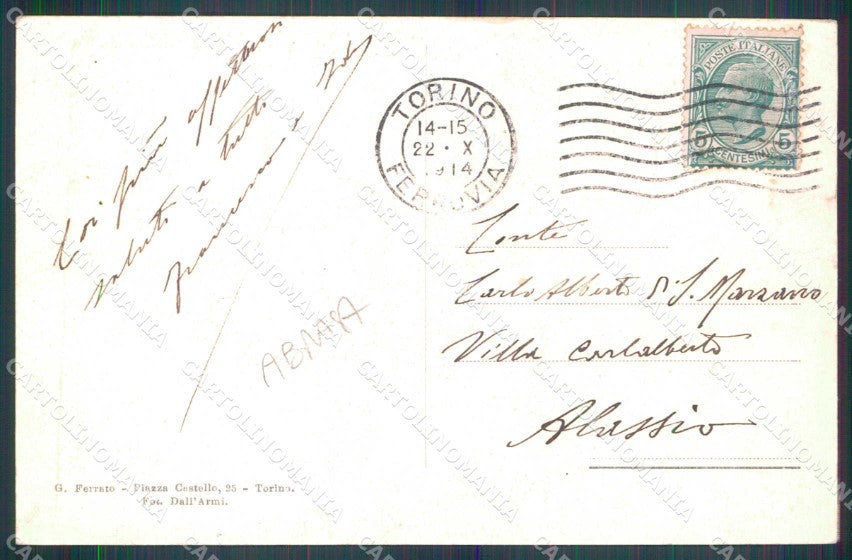 Coi più affettuosi
saluti a tutti
Francesco
ABMAPA
TORINO
14-15
22 · X
1914
FERROVIA
POSTE ITALIANE
5 CENTESIMI 5
Conte
Carlo Alberto di S. Marzano
Villa Carlalberto
Alassio
G. Ferrato - Piazza Castello, 25 - Torino.
Fot. Dall'Armi.
CARTOLINOMANIA